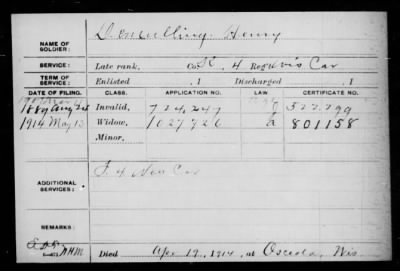 NAME OF SOLDIER: Henry
SERVICE: Late rank, Co. K, 4 Reg. Wis Cav
TERM OF SERVICE: Enlisted , 1 Discharged , 1
DATE OF FILING. CLASS. APPLICATION NO. LAW CERTIFICATE NO.
1889 Aug 24 Invalid, 724,247 522,299
1914 May 13 Widow, 1027926 801158
Minor,
ADDITIONAL SERVICES: F. 4 Wis Cav
REMARKS:
Died Apr 19, 1914, at Osceola, Wis.